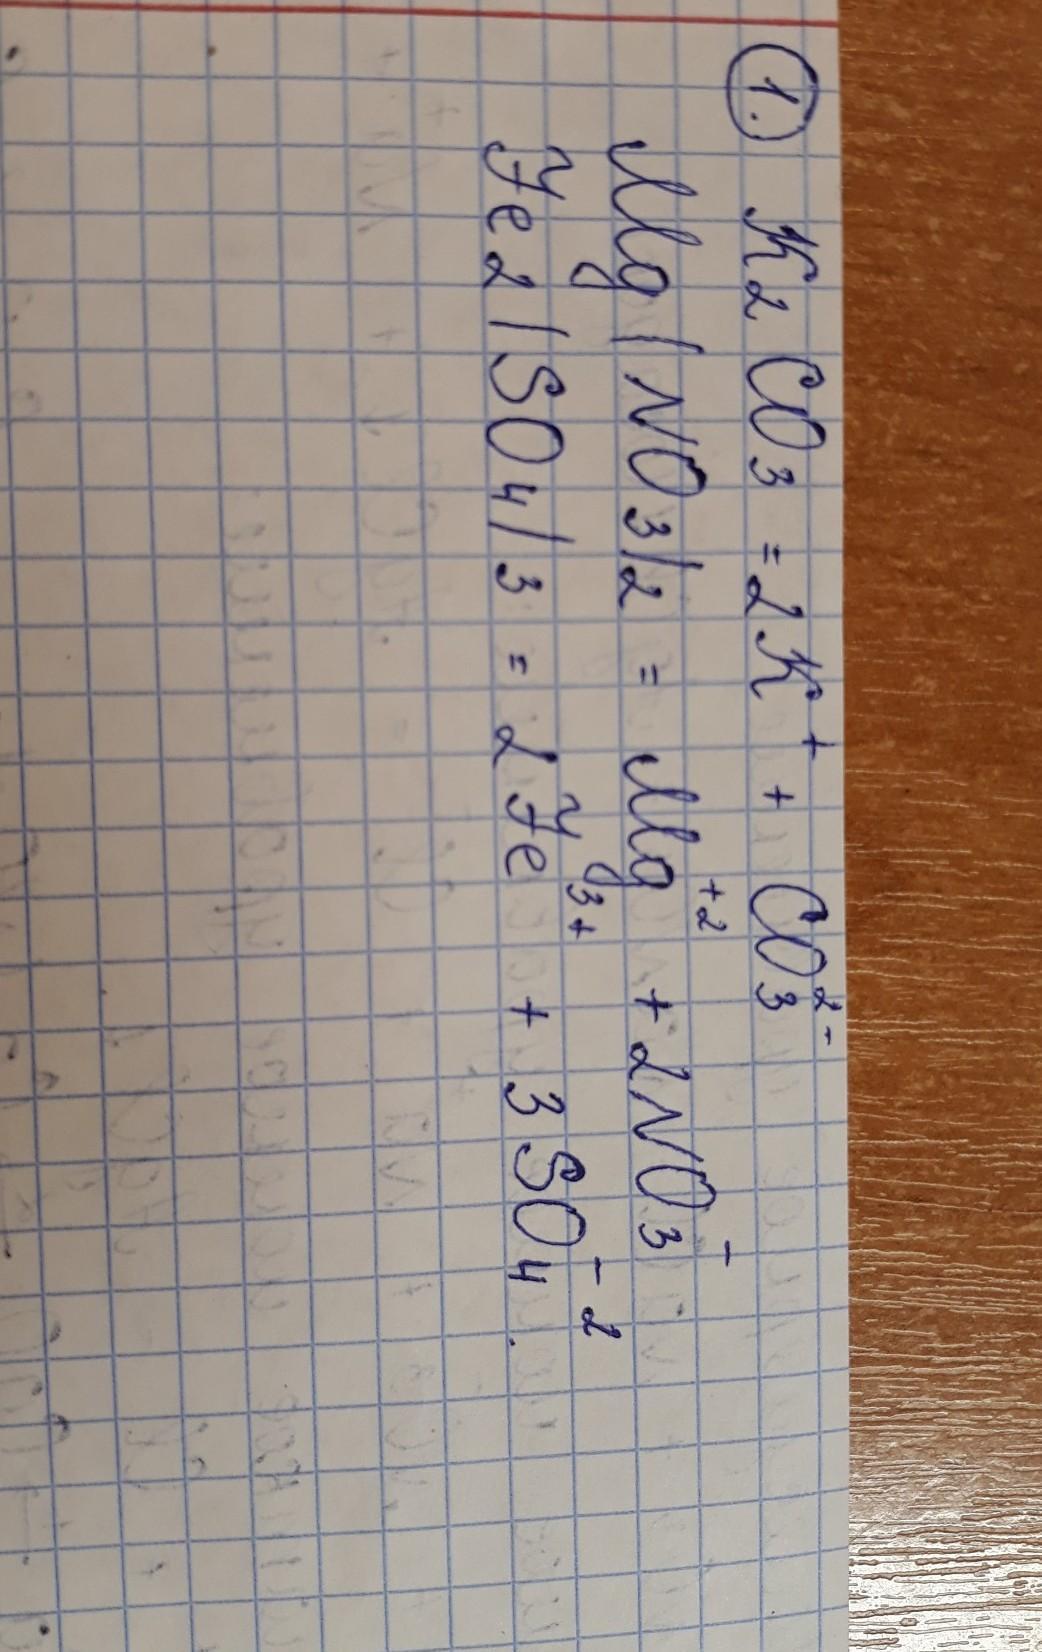 1. K2CO3 = 2K+ + CO3 2-
Mg(NO3)2 = Mg+2 + 2NO3-
Fe2(SO4)3 = 2Fe3+ + 3SO4-2.